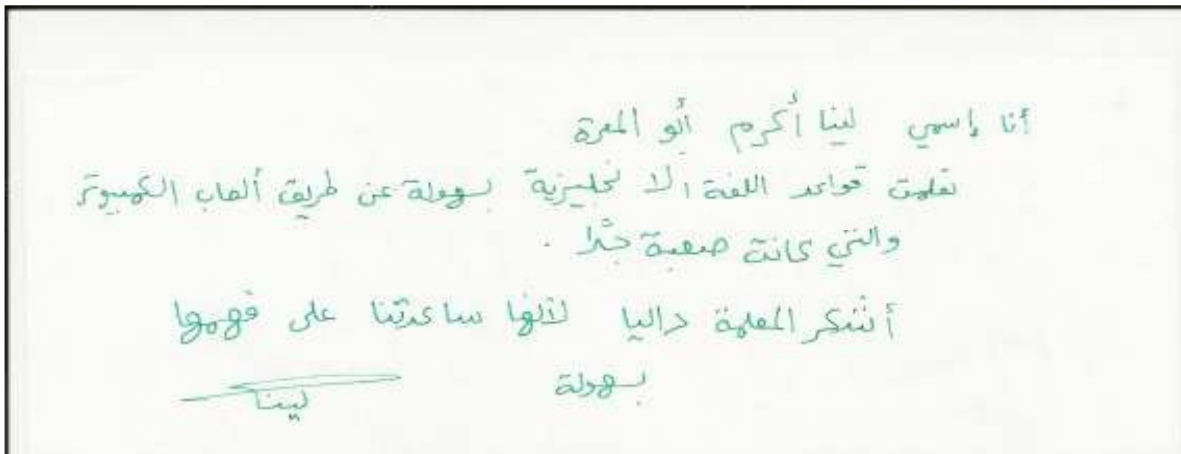 أنا إسمي لينا أكرم أبو المعزة
تعلمت قواعد اللغة الا نجليزية بسهولة عن طريق ألعاب الكمبيوتر
والتي كانت صعبة جدًا .
أشكر المعلمة داليا لأنها ساعدتنا على فهمها
بسهولة
لينا